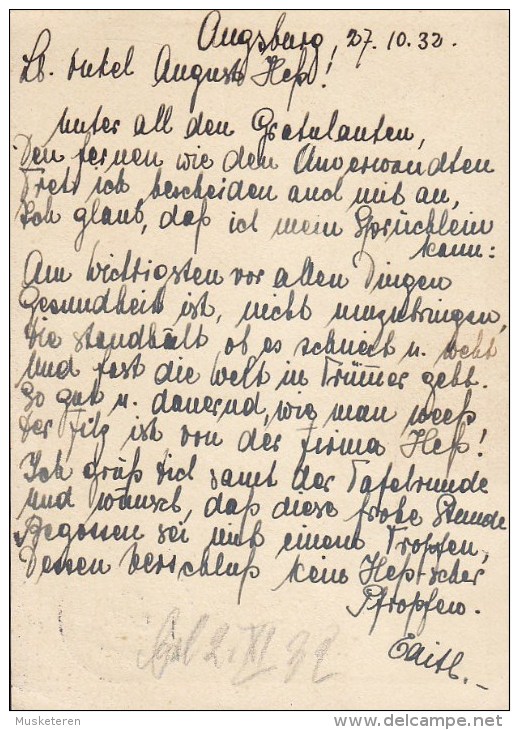 Augsburg, 27.10.32.
Lb. Onkel August Heß!
Unter all den Gratulanten,
Den fernen wie den Anverwandten
Tret ich bescheiden auch mit an,
Ich glaub, daß ich mein Sprüchlein
kann:
Am Wichtigsten vor allen Dingen
Gesundheit ist, nicht umzubringen,
Die standhält ob es schneit u. weht
Und fast die Welt in Trümmer geht.
So gut u. dauernd, wie man weeß
Der Filz ist von der Firma Heß!
Ich grüß Dich samt der Tafelrunde
Und wünsch, daß diese frohe Stunde
Begossen sei mit einem Tropfen,
Dessen Verschluß kein Heß'scher
Pfropfen.
Edith.-
2. XI 32
Musketeren
delcampe.net